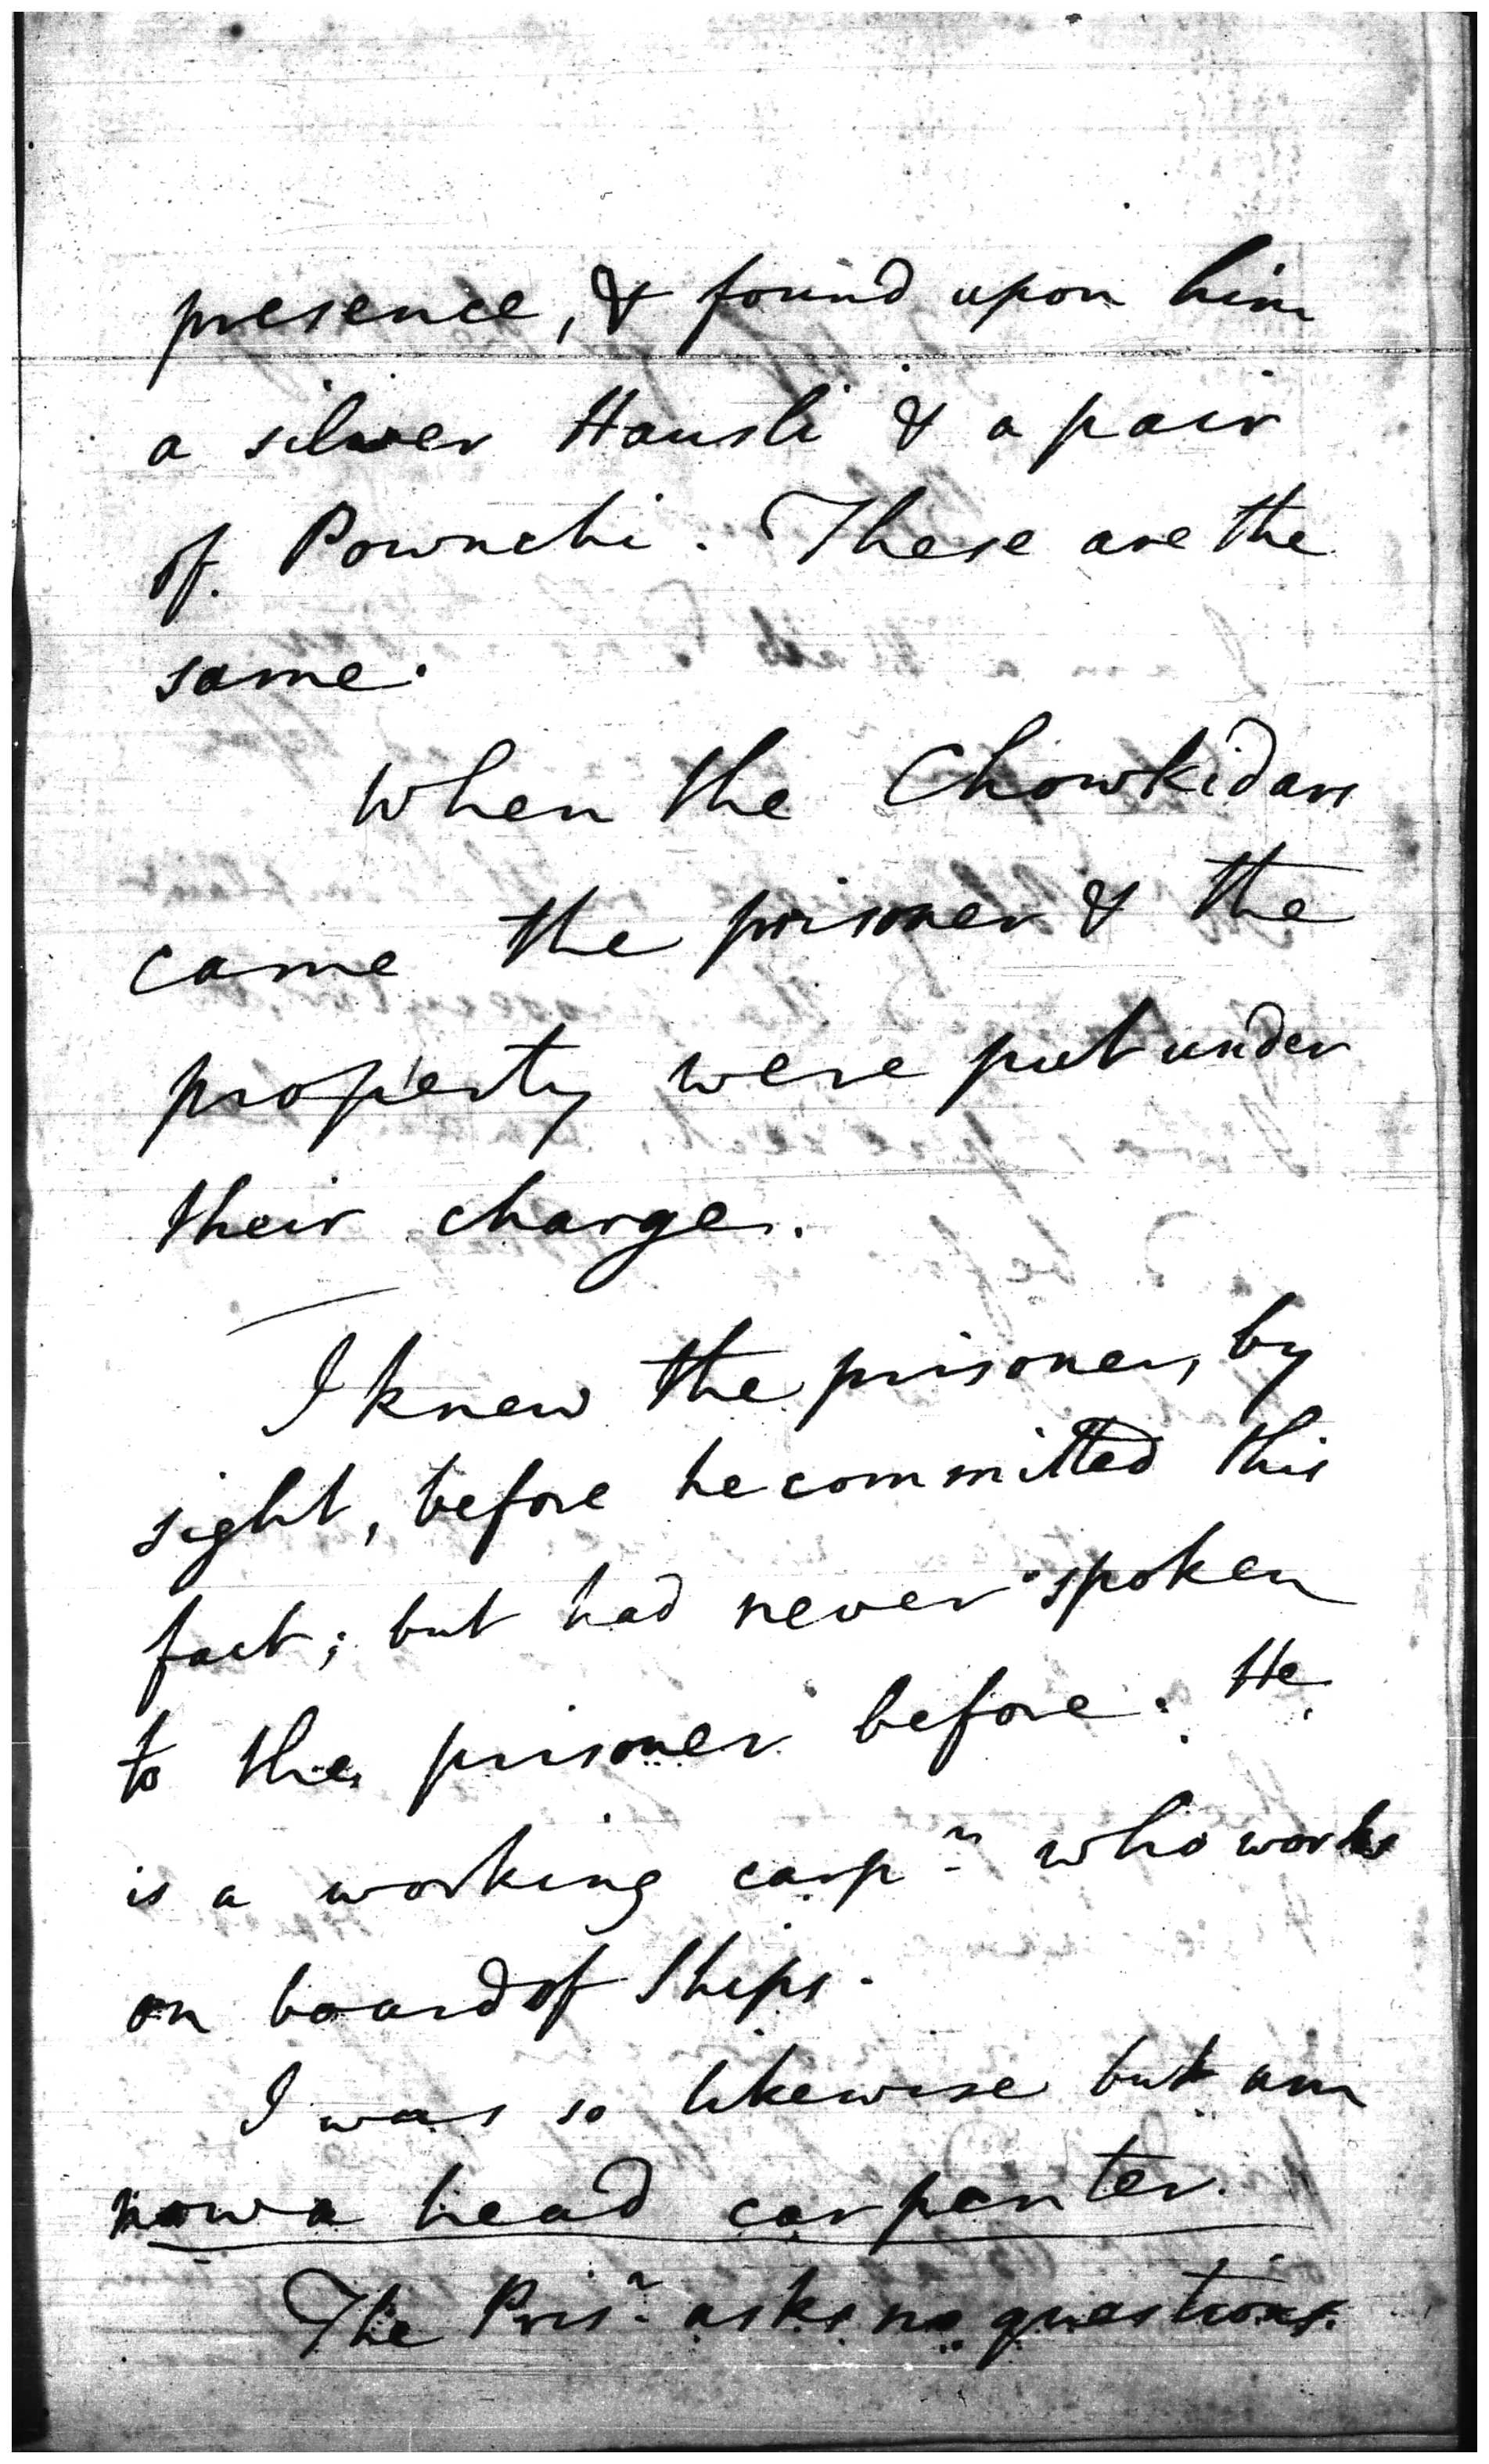 presence, & found upon him
a silver Hansli & a pair
of Pownchi. These are the
same.
When the Chowkidars
came the prisoner & the
property were put under
their charge.
I knew the prisoner, by
sight, before he committed this
fact; but had never spoken
to the prisoner before. He
is a working carpr who works
on board of Ships.
I was so likewise but am
now a head carpenter.
The Prisr asks no questions.